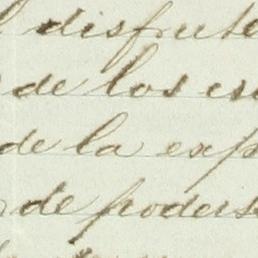 l disfrute
de los es
de la exp
de poders